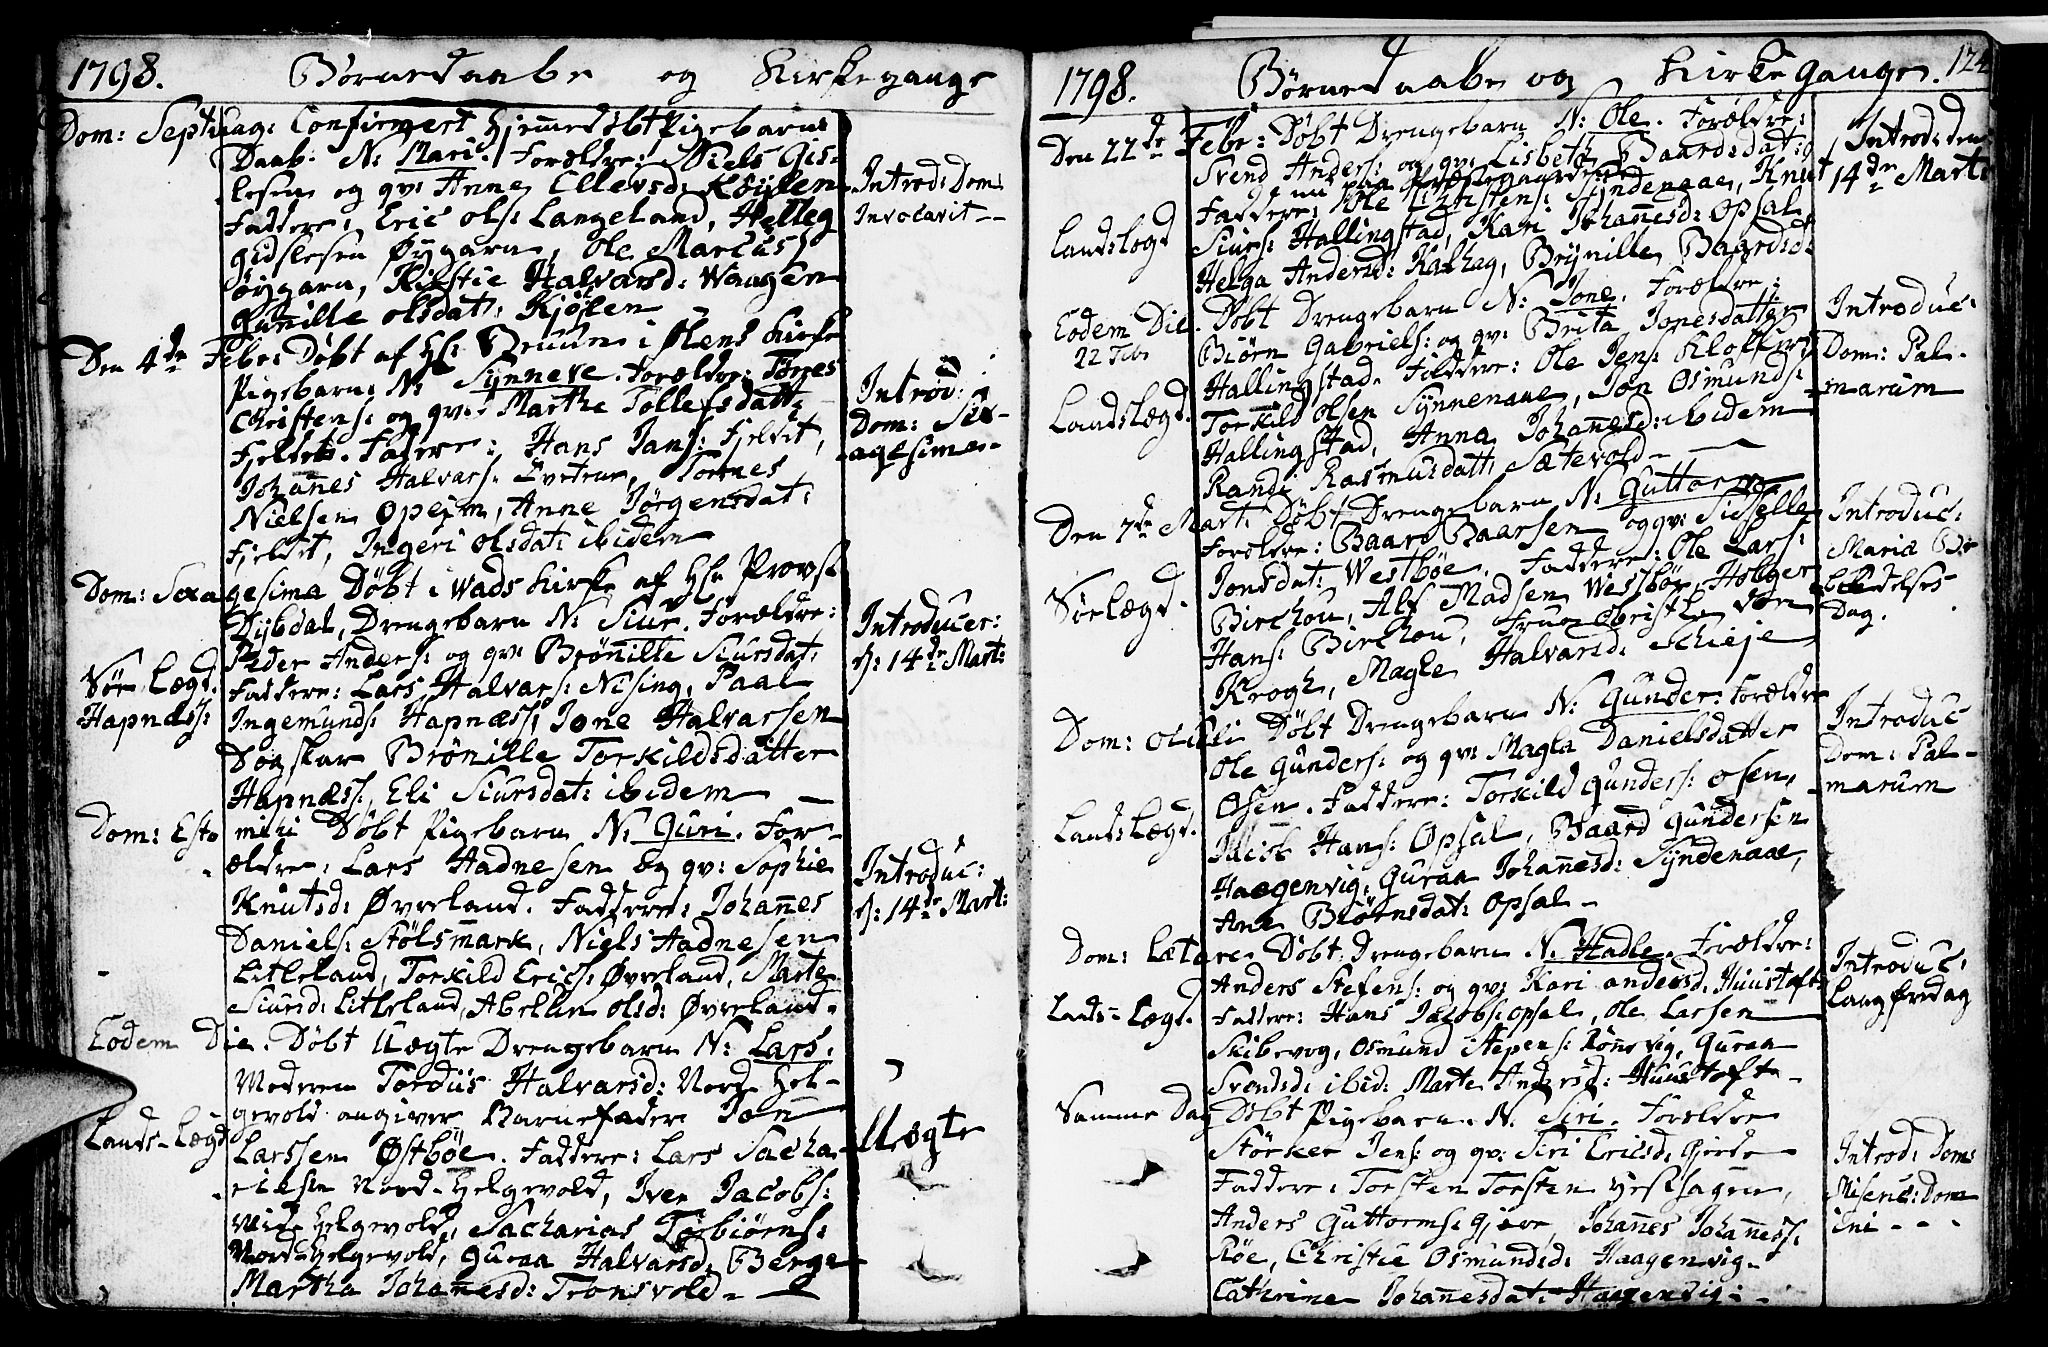 1798. Børnedaabe og Kirkegange
Dom: Septuag: Confirmert Hjemmedøbt Pigebarns
Daab. N: Mari. Forældre: Niels Gis-
lesen og qv: Anne Ellevsd: Køylen
Faddere: Eric Ols: Langeland, Helleg
Gidslesen Øygarn, Ole Marcuss
Øygarn, Kirstie Halvarsd: Waagen
Gunille Olsdat: Kjølen
Introd: Dom:
Invocavit --
Den 4de Febr: Døbt af Hr: Bruun i Ølens Kirke
Pigebarn N: Synneve. Forældre: Tørres
Christens: og qv: Marthe Tollefsdatt:
Fjeldet. Fadere: Hans Jans: Fjeldet,
Johannes Halvars: Tvetene, Tørres
Nielsen Opeim, Anne Jørgensdat:
Fjeldet, Ingeri Olsdat: ibidem
Introd:
Dom: Sex-
agesima-
Dom: Sexagesima Døbt i Wads Kirke af Hr Provst
Dybdal, Drengebarn N: Siur. Forældre:
Peder Anders: og qv: Brønille Siursdat:
Sør Lægd. Faddere: Lars Halvars: Nising, Paal
Hapnæss: Ingemunds: Hapnæss; Jone Halvarsen
Dogskar Brønille Torkildsdatter
Hapnæss:, Eli Siursdat: ibidem
Introducer:
d: 14de Mart:
Dom: Esto mihi Døbt Pigebarn N: Guri. For-
ældre: Lars Hadnesen og qv: Sophie
Knutsd: Øverland. Faddere: Johannes
Daniels: Stølsmark, Niels Hadnesen
Litleland, Torkild Erics: Øverland, Marte
Siursd: Litleland, Abellin Olsd: Øverland.
Introduc:
d: 14de Mart:
Eodem Die. Døbt Uægte Drengebarn N: Lars.
Moderen Tordüs Halvarsd: Nord Hel-
gevold angiver Barnefader Jon
Lands-Lægd Larssen Østbøe. Faddere: Lars Sacha-
riesen Nord-Helgevold, Iver Jacobs:
Mid Helgevold, Sacharias Torbiørns:
Nord-Helgevold, Guraa Halvarsd: Berge
Martha Johannesd: Tronsvold -
Uægte
1798. Børnedaabe og Kirkegange. 124
Den 22de Febr: Døbt Drengebarn N: Ole. Forældre:
Svend Anders: og qv: Lisbeth Baardsdat:
de nu paa Præstegaarden
Faddere: Ole Christens: Syndenaae, Knut
Landslægd Siurs: Hallingstad, Kari Johannesd: Opsal
Helga Andersd: Kalhag, Brynille Baardsd:
Introd: den
14de Mart:
Eodem Die. Døbt Drengebarn N: Jone. Forældre:
22 Febr Biørn Gabriels: og qv: Brita Jonesdatter
Hallingstad. Faddere: Ole Jens:
Landslægd. Torkild Olsen Synnenaae, Jon Osmunds:
Hallingstad, Anna Johannesd: ibidem
Randi Rasmusdatt: Sætevold -
Introduc:
Dom: Pal-
marum
Den 7de Mart: Døbt Drengebarn N: Guttorm
Forældre: Baard Baarsen og qv: Sidselle
Jonsdat: Westbøe. Faddere: Ole Lars:
Sørlægd. Birchou, Alf Madsen Westbøe, Holger
Hans: Birchou, Frue Christle von
Krogh, Magle Halvarsd: Schieje
Introduc:
Mariæ Be
budelses
Dag.
Dom: Oculi Døbt Drengebarn N: Gunder. Forældre
Ole Gunders: og qv: Magla Danielsdatter
Osen. Faddere: Torkild Gunders: Osen,
Lands Lægd. Hans: Opsal, Baard Gundersen
Haagenvig, Guraa Johannesd: Syndenaae,
Ane Biørnsdat: Opsal -
Introduc
Dom: Pal-
marum
Dom: Lætare Døbt Drengebarn N: Hadle. Forældre:
Anders Stefens: og qv: Kari Andersd: Huustoft
Lands-Lægd. Faddere: Hans Jacobs: Opsal, Ole Larsen
Skibevog, Osmund Stepens: Rønnevig, Guraa
Svendsd: ibid: Marte Andersd: Huustoft -
Introduc:
Langfredag
Samme Dag Døbt Pigebarn N: Siri. Forældre
Størker Jens: og qv: Siri Ericsd: Gjerde
Faddere: Torsten Torsten Hesthagen,
Anders Guttorms: Gjære, Johannes Johanness:
Røe, Christie Osmundsd: Haagenvig
Cathrine Johannesdat: Haagenvig -
Introd: Dom:
Misericr: Dom
ini - - -